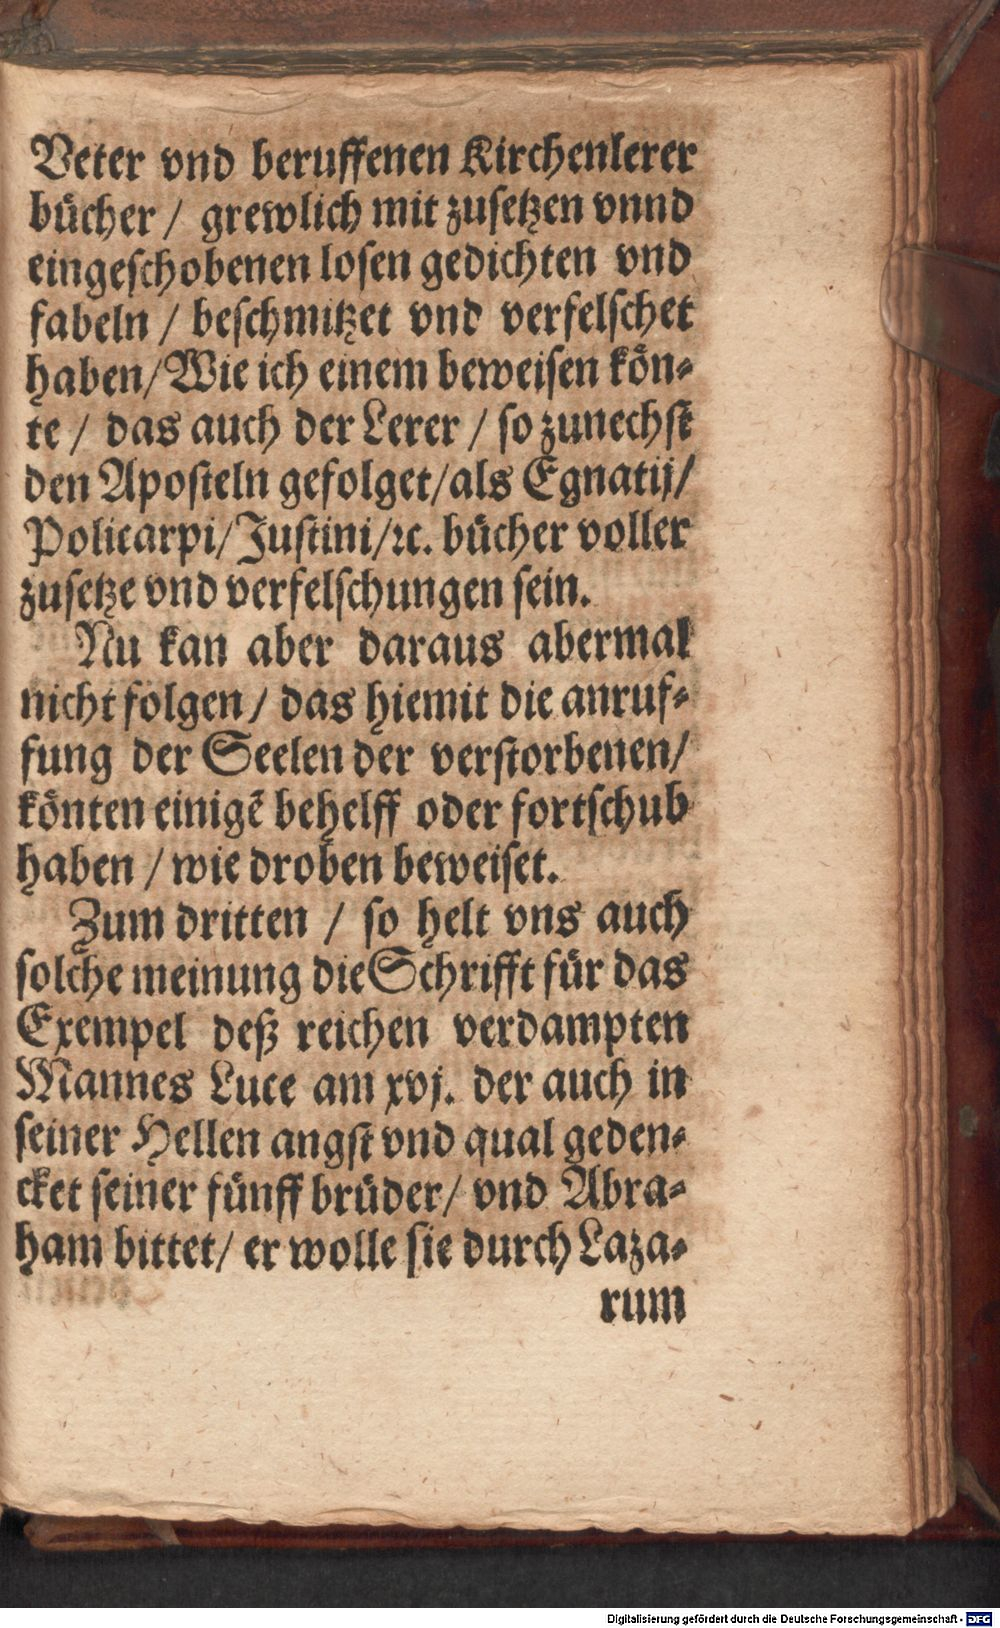 Veter vnd beruffenen Kirchenlerer
bücher / grewlich mit zusetzen vnnd
eingeschobenen losen gedichten vnd
fabeln / beschmitzet vnd verfelschet
haben/Wie ich einem beweisen kön-
te / das auch der Lerer / so zunechst
den Aposteln gefolget/als Egnatij/
Policarpi/Justini/ꝛc. bücher voller
zusetze vnd verfelschungen sein.
Nu kan aber daraus abermal
nicht folgen / das hiemit die anruf-
fung der Seelen der verstorbenen/
könten einigẽ behelff oder fortschub
haben / wie droben beweiset.
Zum dritten / so helt vns auch
solche meinung die Schrifft für das
Exempel deß reichen verdampten
Mannes Luce am xvj. der auch in
seiner Hellen angst vnd qual geden-
cket seiner fünff brüder/ vnd Abra-
ham bittet/ er wolle sie durch Laza-
rum
Digitalisierung gefördert durch die Deutsche Forschungsgemeinschaft - DFG